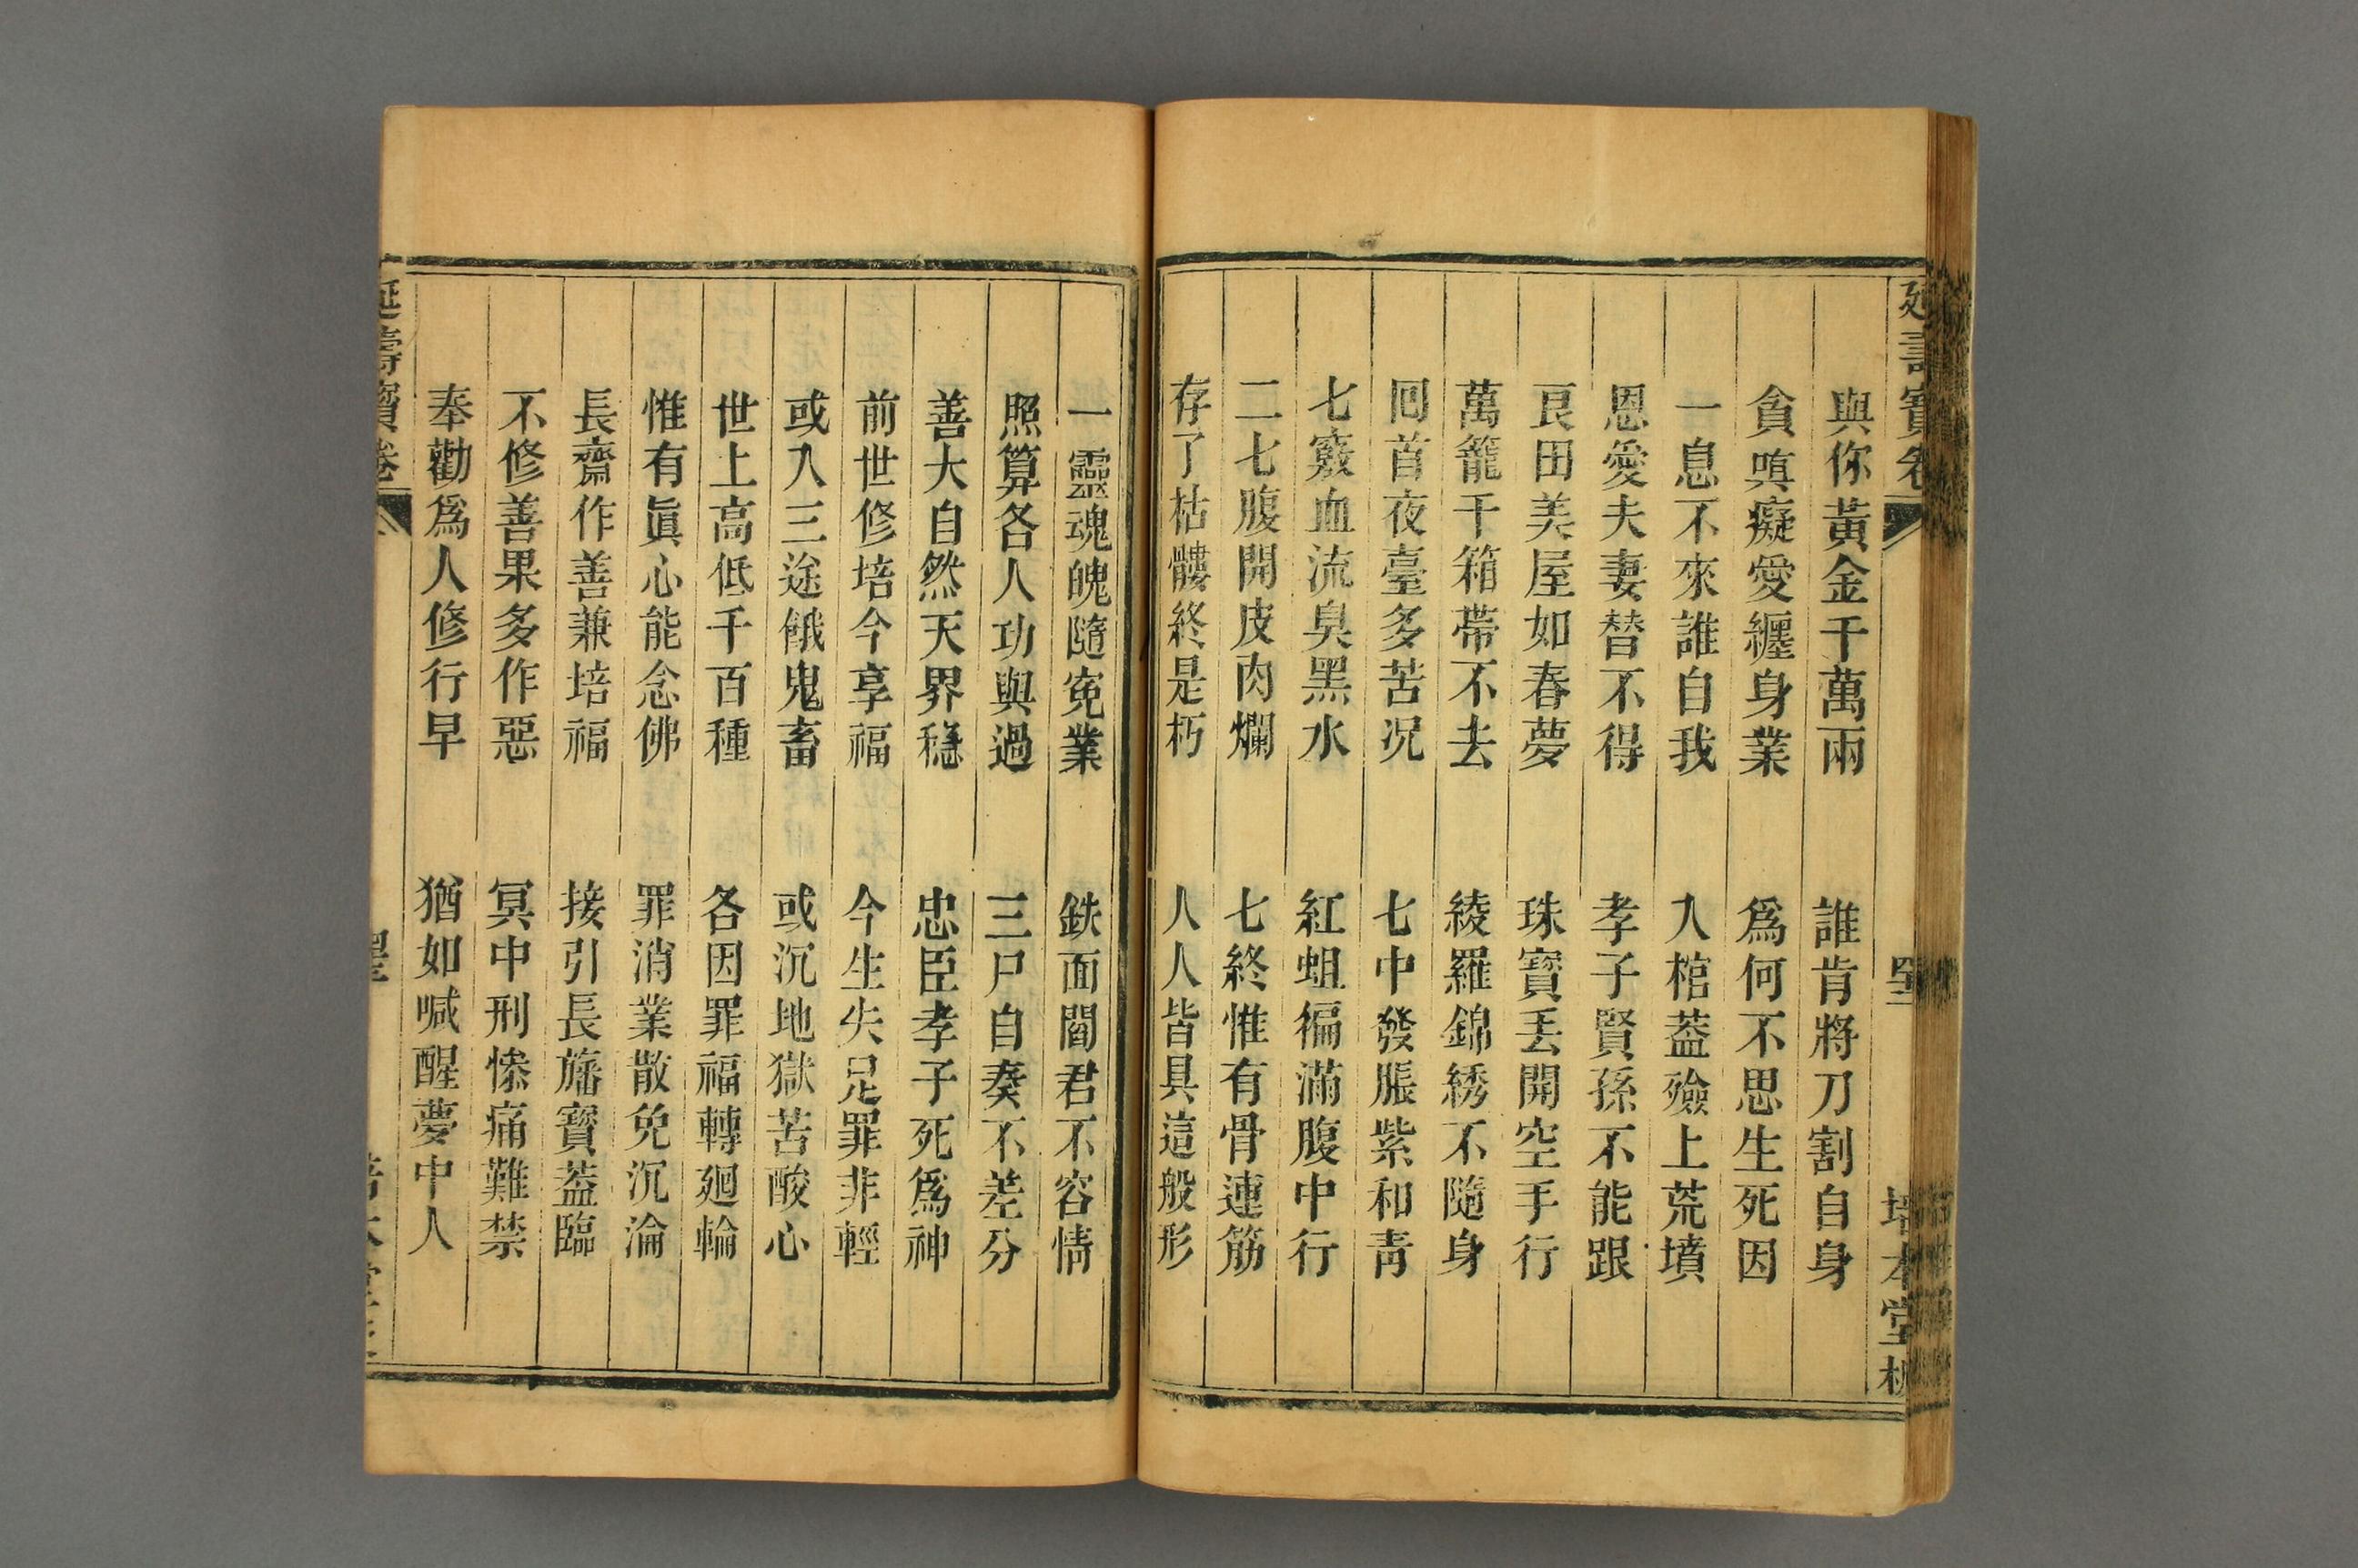 延壽寶卷
培本堂
與你黃金千萬兩　誰肯將刀割自身
貪嗔癡愛纏身業　爲何不思生死因
一息不來誰自我　入棺葢殮上荒墳
恩愛夫妻替不得　孝子賢孫不能跟
良田美屋如春夢　珠寶丢開空手行
萬籠千箱帶不去　綾羅錦綉不隨身
囘首夜臺多苦况　七中發脹紫和靑
七竅血流臭黑水　紅蛆徧滿腹中行
二七腹開皮肉爛　七終惟有骨連筋
存了枯髏終是朽　人人皆具這般形
一靈魂魄隨寃業　鉄面閻君不容情
照算各人功與過　三尸自奏不差分
善大自然天界穩　忠臣孝子死爲神
前世修培今享福　今生失足罪非輕
或入三途餓鬼畜　或沉地獄苦酸心
世上高低千百種　各因罪福轉廻輪
惟有眞心能念佛　罪消業散免沉淪
長齋作善兼培福　接引長旛寶葢臨
不修善果多作惡　冥中刑慘痛難禁
奉勸爲人修行早　猶如喊醒夢中人
延壽寶卷